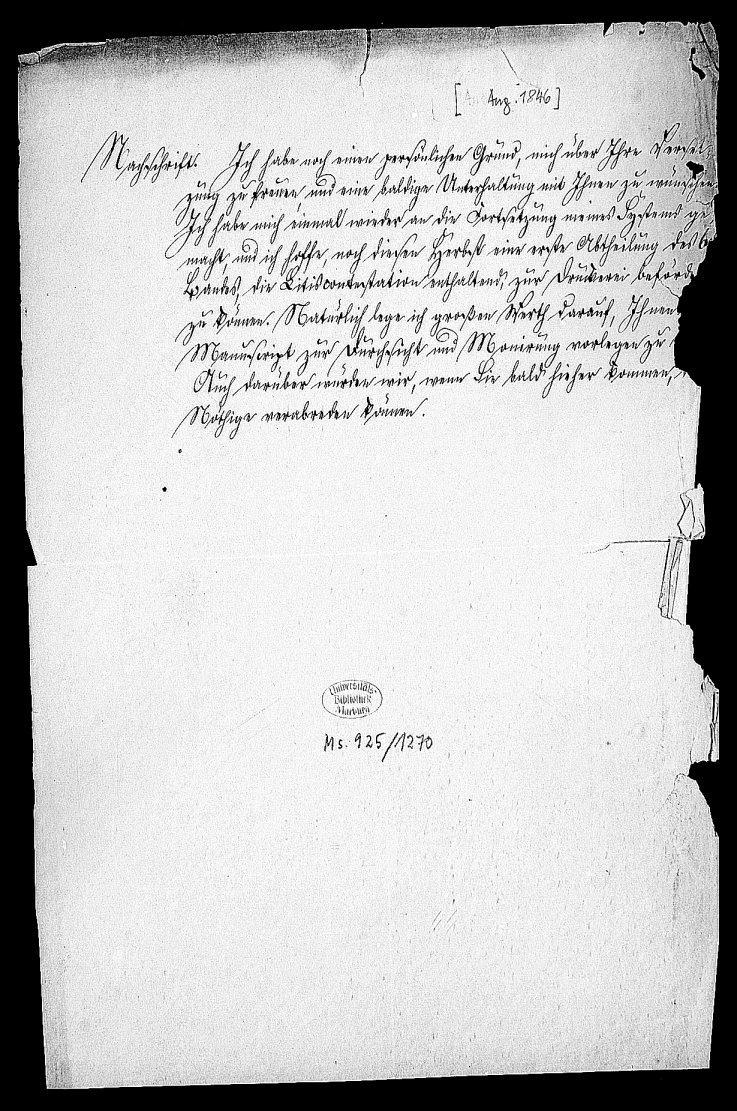 [Aug. 1846]
Nachschrift. Ich habe noch einen persönlichen Grund, mich über Ihre Verset-
zung zu freuen, und eine baldige Unterhaltung mit Ihnen zu wünschen.
Ich habe mich einmal wieder an die Fortsetzung meines Systems ge-
macht, und ich hoffe, noch diesen Herbst eine erste Abtheilung des 6
Bandes, die Litiscontestation enthaltend, zur Druckerei beförde
zu können. Natürlich lege ich großen Werth darauf, Ihnen
Manuscript zur Durchsicht und Monirung vorlegen zu
Auch darüber würden wir, wenn Sie bald hieher kommen,
Nöthige verabreden können.
Universitäts-
Bibliothek
Marburg
Ms. 925/1270